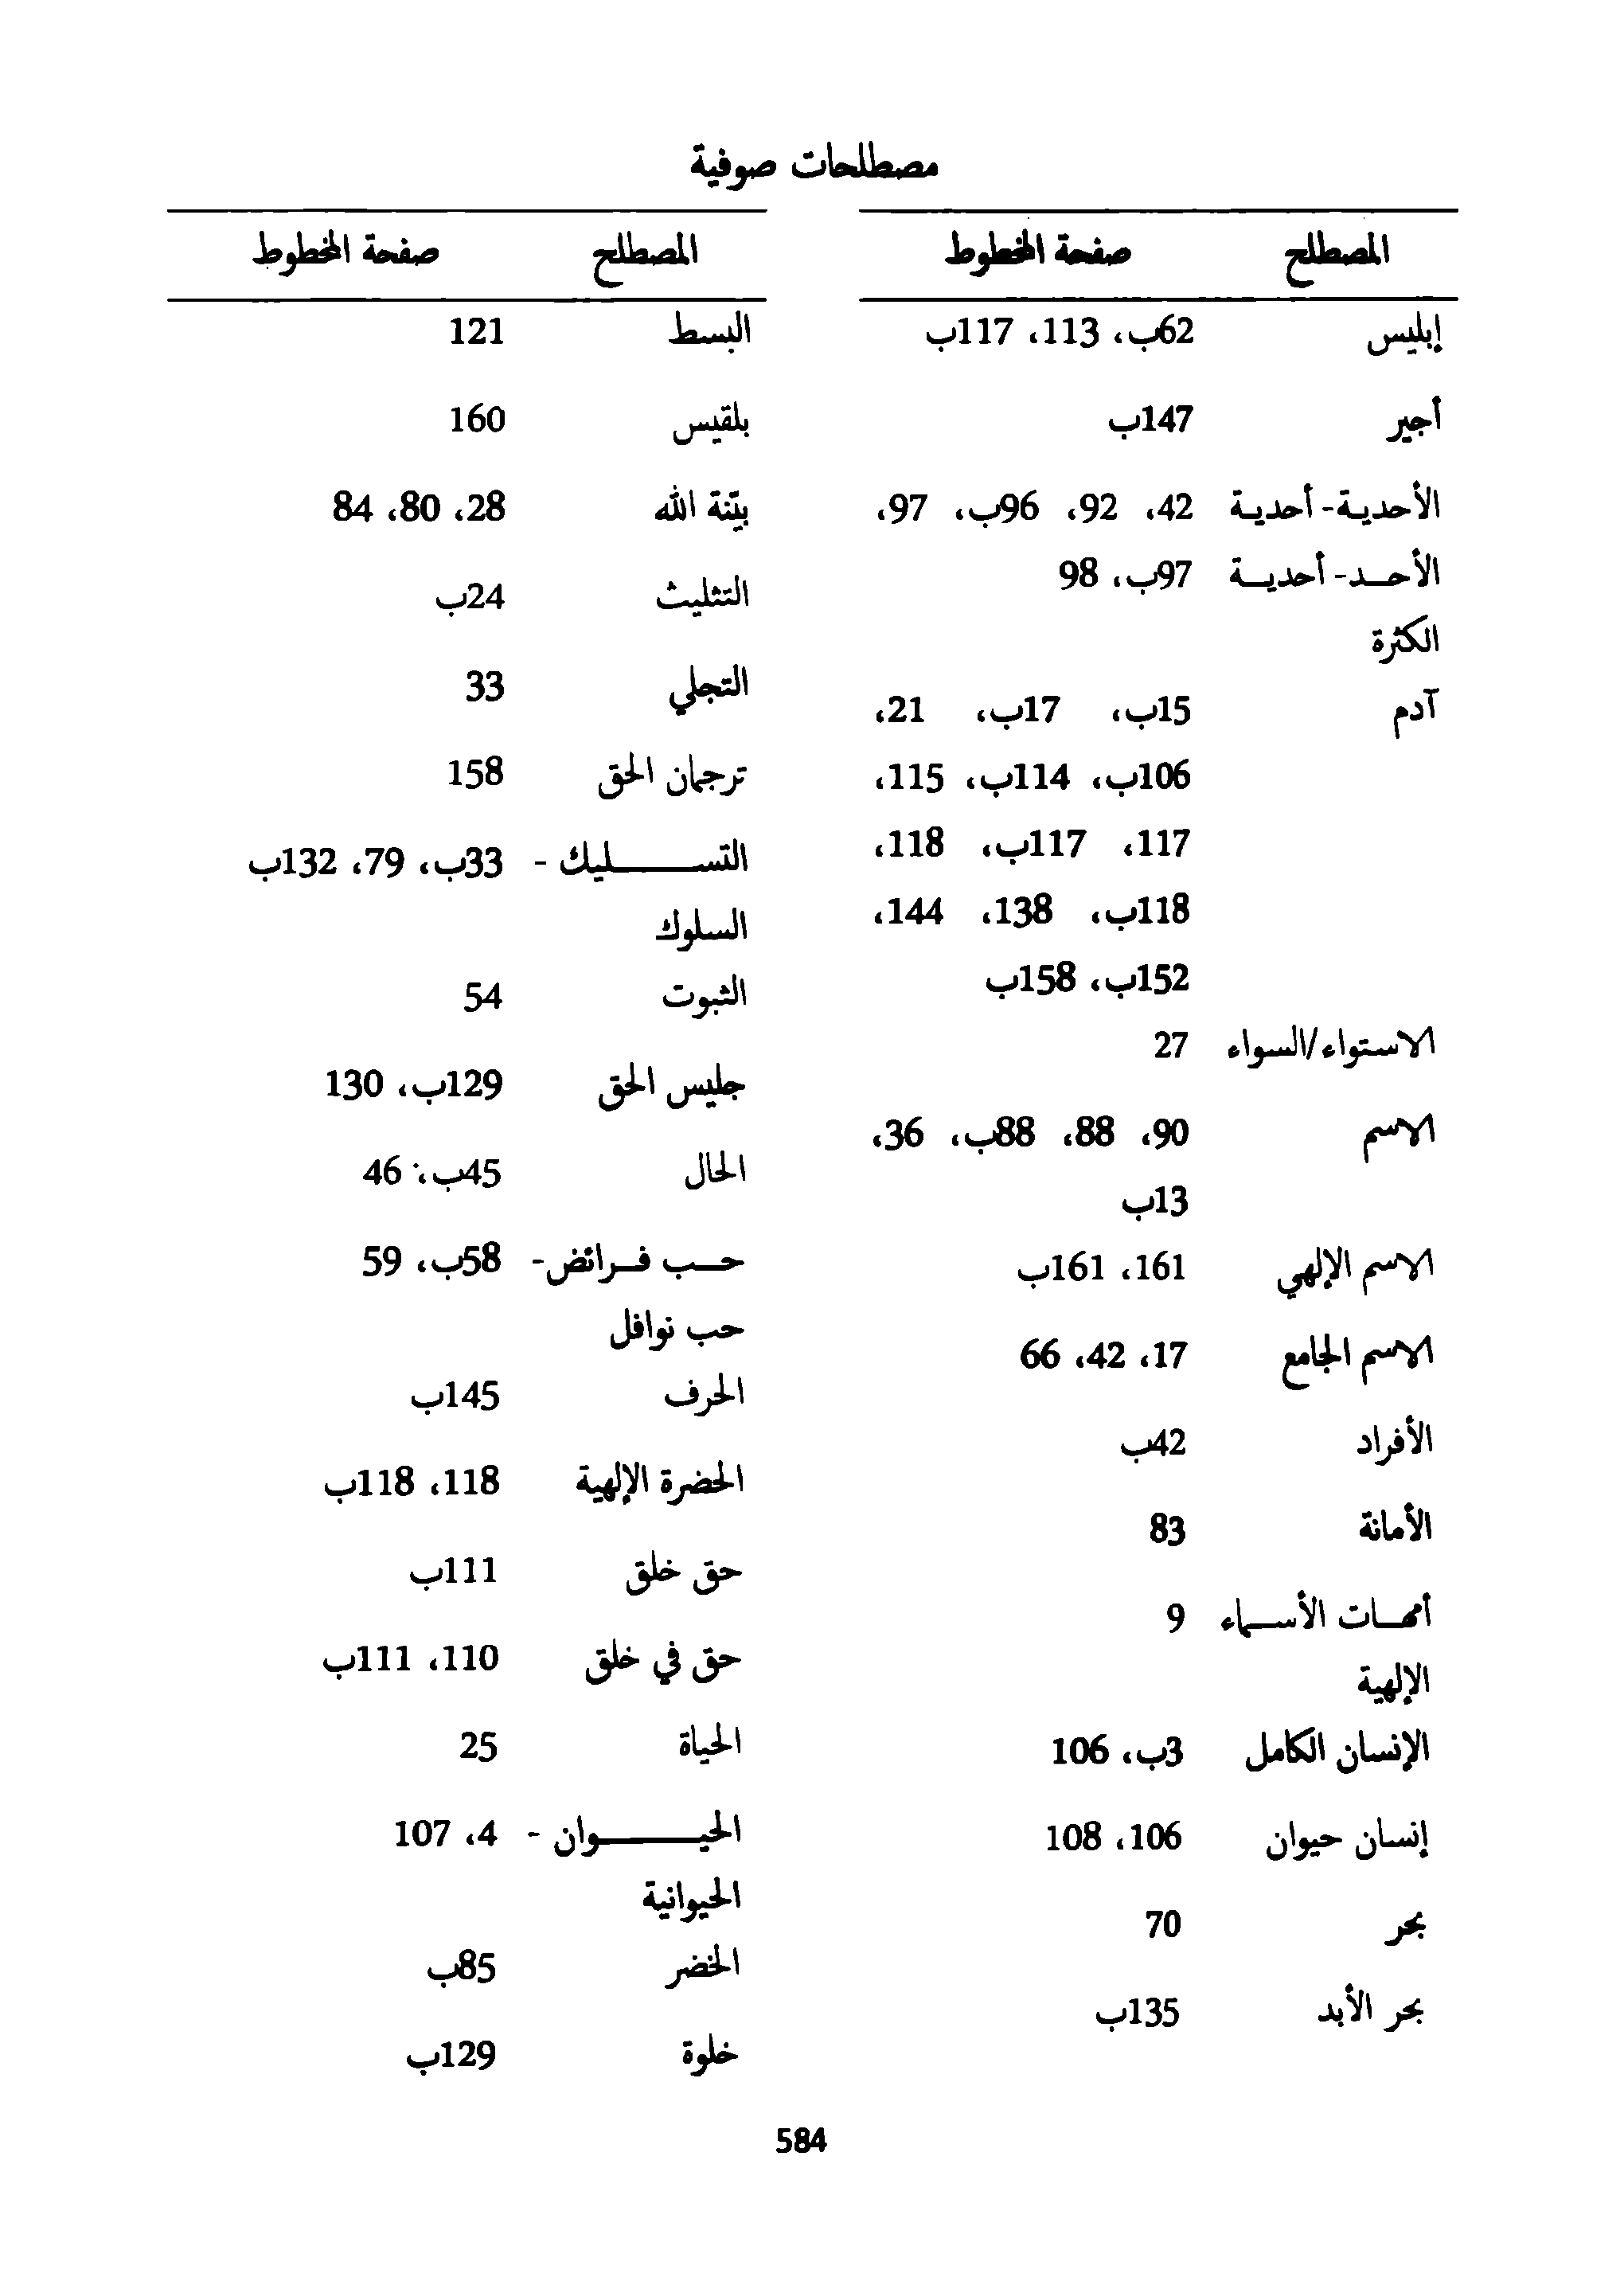 مصطلحات صوفية
المصطلح صفحة المخطوط
إبليس 62ب، 113، 117ب
أجير 147ب
الأحدية- أحدية 42، 92، 96ب، 97،
الأحد- أحدية 97ب، 98
الكثرة
آدم 15ب، 17ب، 21،
106ب، 114ب، 115،
117، 117ب، 118،
118ب، 138، 144،
152ب، 158ب
الاستواء/السواء 27
الاسم 90، 88، 88ب، 36،
13ب
الاسم الإلهي 161، 161ب
الاسم الجامع 17، 42، 66
الأفراد 42ب
الأمانة 83
أمهات الأسماء 9
الإلهية
الإنسان الكامل 3ب، 106
إنسان حيوان 106، 108
بحر 70
بحر الأبد 135ب
المصطلح صفحة المخطوط
البسط 121
بلقيس 160
بيّنة الله 28، 80، 84
التثليث 24ب
التجلي 33
ترجمان الحق 158
التسليك - 33ب، 79، 132ب
السلوك
الثبوت 54
جليس الحق 129ب، 130
الحال 45ب، 46
حب فرائض- 58ب، 59
حب نوافل
الحرف 145ب
الحضرة الإلهية 118، 118ب
حق خلق 111ب
حق في خلق 110، 111ب
الحياة 25
الحيوان - 4، 107
الحيوانية
الخضر 85ب
خلوة 129ب
584